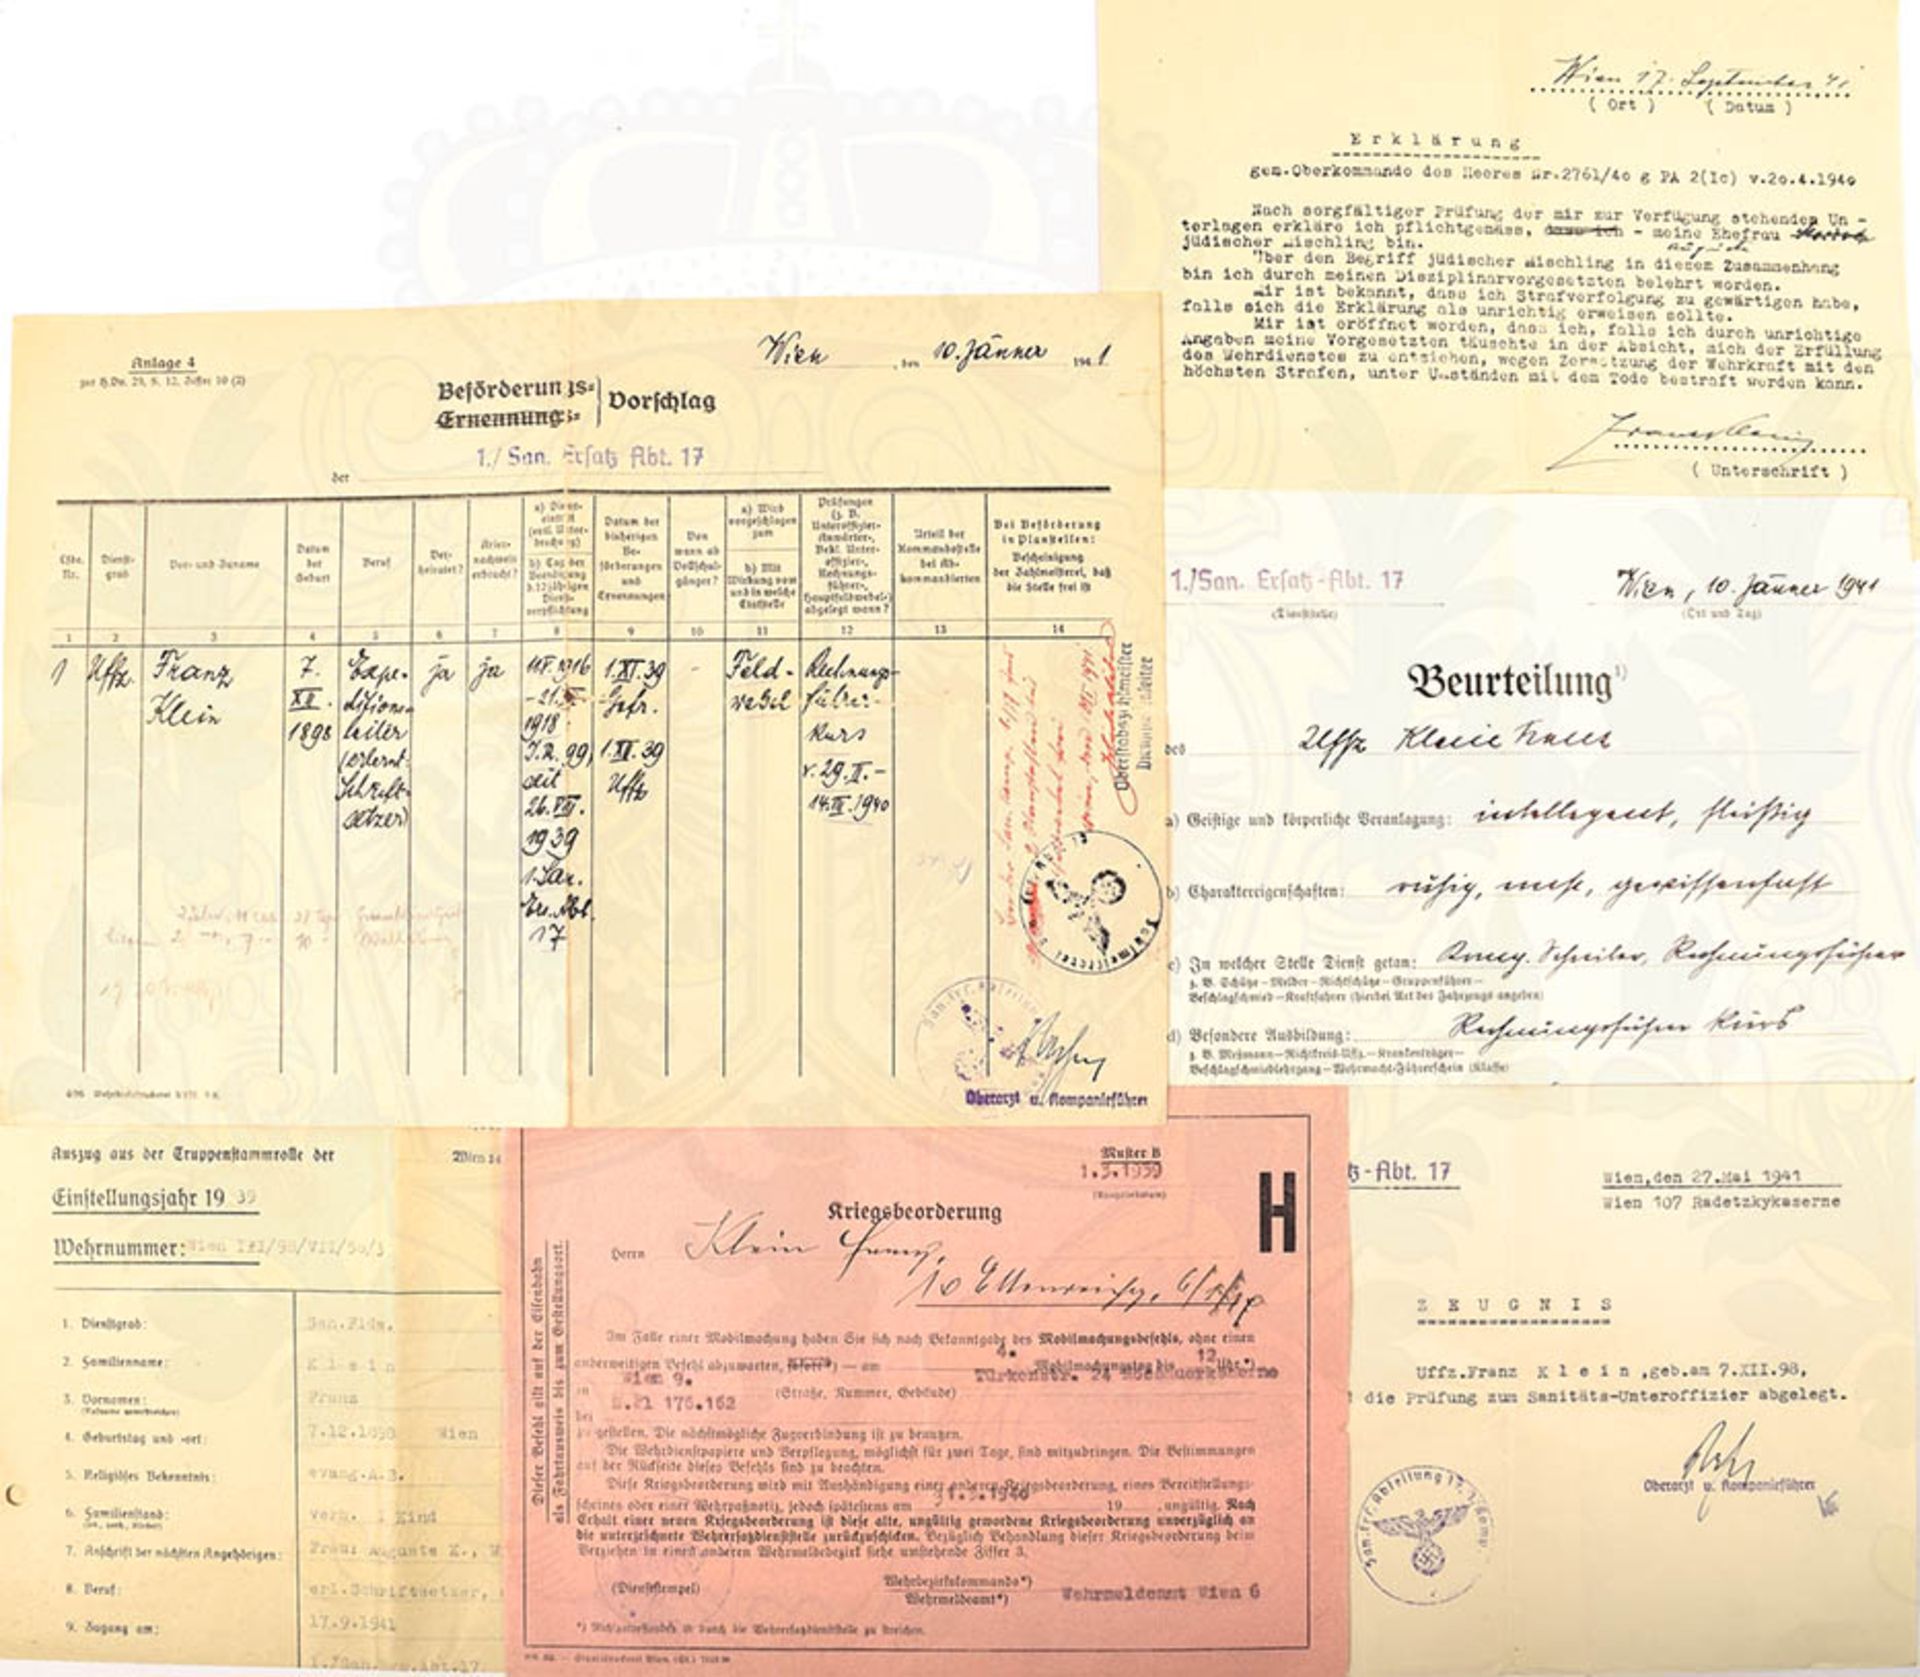 Wien 17. September 41
( Ort ) ( Datum )
Erklärung
gem.Oberkommando des Heeres Nr.2761/4o g PA 2(Ic) v.2o.4.194o
Nach sorgfältiger Prüfung der mir zur Verfügung stehenden Un -
terlagen erkläre ich pflichtgemäss, dass ich - meine Ehefrau
jüdischer Mischling bin.
Über den Begriff jüdischer Mischling in diesem Zusammenhang
bin ich durch meinen Disziplinarvorgesetzten belehrt worden.
Mir ist bekannt, dass ich Strafverfolgung zu gewärtigen habe,
falls sich die Erklärung als unrichtig erweisen sollte.
Mir ist eröffnet worden, dass ich, falls ich durch unrichtige
Angaben meine Vorgesetzten täuschte in der Absicht, mich der Erfüllung
des Wehrdienstes zu entziehen, wegen Zersetzung der Wehrkraft mit den
höchsten Strafen, unter Umständen mit dem Tode bestraft werden kann.
Franz Klein
( Unterschrift )
Anlage 4
zur H.Dv. 29, S. 12, Ziffer 10 (2)
Wien, den 10. Jänner 1941
Beförderungs-
Ernennungs-
Vorschlag
der 1./San. Ersatz Abt. 17
Lfde. Nr.
Dienst-
grad
Vor- und Zuname
Datum
der
Geburt
Beruf
Ver-
heiratet?
Arier-
nachweis
erbracht?
a) Dienst-
eintritt
(evtl. Unter-
brechung)
b) Tag der
Beendigung
d. 12jährigen
Dienst-
verpflichtung
Datum der
bisherigen
Be-
förderungen
und
Ernennungen
Von
wann ab
Vollschul-
gänger?
a) Wird
vorgeschlagen
zum
b) Mit
Wirkung vom
und in welche
Stelle
Prüfungen
(z. B.
Unteroffizier-
Anwärter-,
Bekl. Unter-
offizier-,
Rechnungs-
führer-,
Hauptfeldwebel-)
abgelegt wann?
Urteil der
Kommandostelle
bei Ab-
kommandierten
Bei Beförderung
in Planstellen:
Bescheinigung
der Zahlmeisterei, daß
die Stelle frei ist
1 2 3 4 5 6 7 8 9 10 11 12 13 14
1
Uffz.
Franz
Klein
7.
XII.
1898
Expe-
ditions-
leiter
(erlernt.
Schrift-
setzer)
ja
ja
1918
I.R. 99,
seit
26. VIII.
1939
1. San.
Ers. Abt.
17
1. XI. 39
Gefr.
1. XII. 39
Uffz
-
Feld-
webel
Rechnungs-
führer-
kurs
v. 29. II. -
14. III. 1940
Oberstabszahlmeister
Oberarzt u. Kompanieführer
1./San. Ersatz-Abt. 17
(Dienststelle)
Wien, 10. Jänner 1941
(Ort und Tag)
Beurteilung¹)
des Uffz Klein Franz
a) Geistige und körperliche Veranlagung: intellegent, fleißig
b) Charaktereigenschaften: ruhig, nett, gewissenhaft
c) In welcher Stelle Dienst getan: Komp. Schreiber, Rechnungsführer
z. B. Schütze – Melder – Richtschütze – Gruppenführer –
Beschlagschmied – Kraftfahrer (hierbei Art des Fahrzeugs angeben)
d) Besondere Ausbildung: Rechnungsführer Kurs
z. B. Meßmann – Richtkreis-Uffz. – Krankenträger –
Beschlagschmiedlehrgang – Wehrmacht-Führerschein (Klasse)
Auszug aus der Truppenstammrolle der
Wien
Einstellungsjahr 19 39
Wehrnummer: Wien III/98/VII/50/3
1. Dienstgrad: San.Fldw.
2. Familienname: Klein
3. Vornamen: Franz
(Rufname unterstreichen)
4. Geburtstag und -ort: 7.12.1898 Wien
5. Religiöses Bekenntnis: evang.A.B.
6. Familienstand: verh. 1 Kind
(led., verh., Kinder)
7. Anschrift der nächsten Angehörigen: Frau: Auguste K., W
8. Beruf: erl.Schriftsetzer,
9. Zugang am: 17.9.1941
1./San.Ers.Abt.17
Dieser Befehl gilt auf der Eisenbahn
als Fahrtausweis bis zum Gestellungsort.
Muster B
1.3.1939
Kriegsbeorderung
H
Herrn Klein Franz,
Im Falle einer Mobilmachung haben Sie sich nach Bekanntgabe des Mobilmachungsbefehls, ohne einen
anderweitigen Befehl abzuwarten, – am 4. Mobilmachungstag bis 12 Uhr *)
in Wien 9. Türkenstr. 24
(Straße, Nummer, Gebäude)
bei 176.162
zu gestellen. Die nächstmögliche Zugverbindung ist zu benutzen.
Die Wehrdienstpapiere und Verpflegung, möglichst für zwei Tage, sind mitzubringen. Die Bestimmungen
auf der Rückseite dieses Befehls sind zu beachten.
Diese Kriegsbeorderung wird mit Aushändigung einer anderen Kriegsbeorderung, eines Bereitstellungs-
scheines oder einer Wehrpaßnotiz, jedoch spätestens am 31.3.1940 19 , ungültig. Nach
Erhalt einer neuen Kriegsbeorderung ist diese alte, ungültig gewordene Kriegsbeorderung unverzüglich an
die unterzeichnete Wehrersatzdienststelle zurückzuschicken. Bezüglich Behandlung dieser Kriegsbeorderung beim
Verziehen in einen anderen Wehrmeldebezirk siehe umstehende Ziffer 3.
(Dienststempel)
Wehrbezirkskommando*)
Wehrmeldeamt*)
Wehrmeldeamt Wien 6
*) Nichtzutreffendes ist durch die Wehrersatzdienststelle zu streichen.
z-Abt. 17
Wien,den 27.Mai 1941
Wien 107 Radetzkykaserne
ZEUGNIS
Uffz.Franz Klein ,geb.am 7.XII.98,
die Prüfung zum Sanitäts-Unteroffizier abgelegt.
Oberarzt u. Kompanieführer